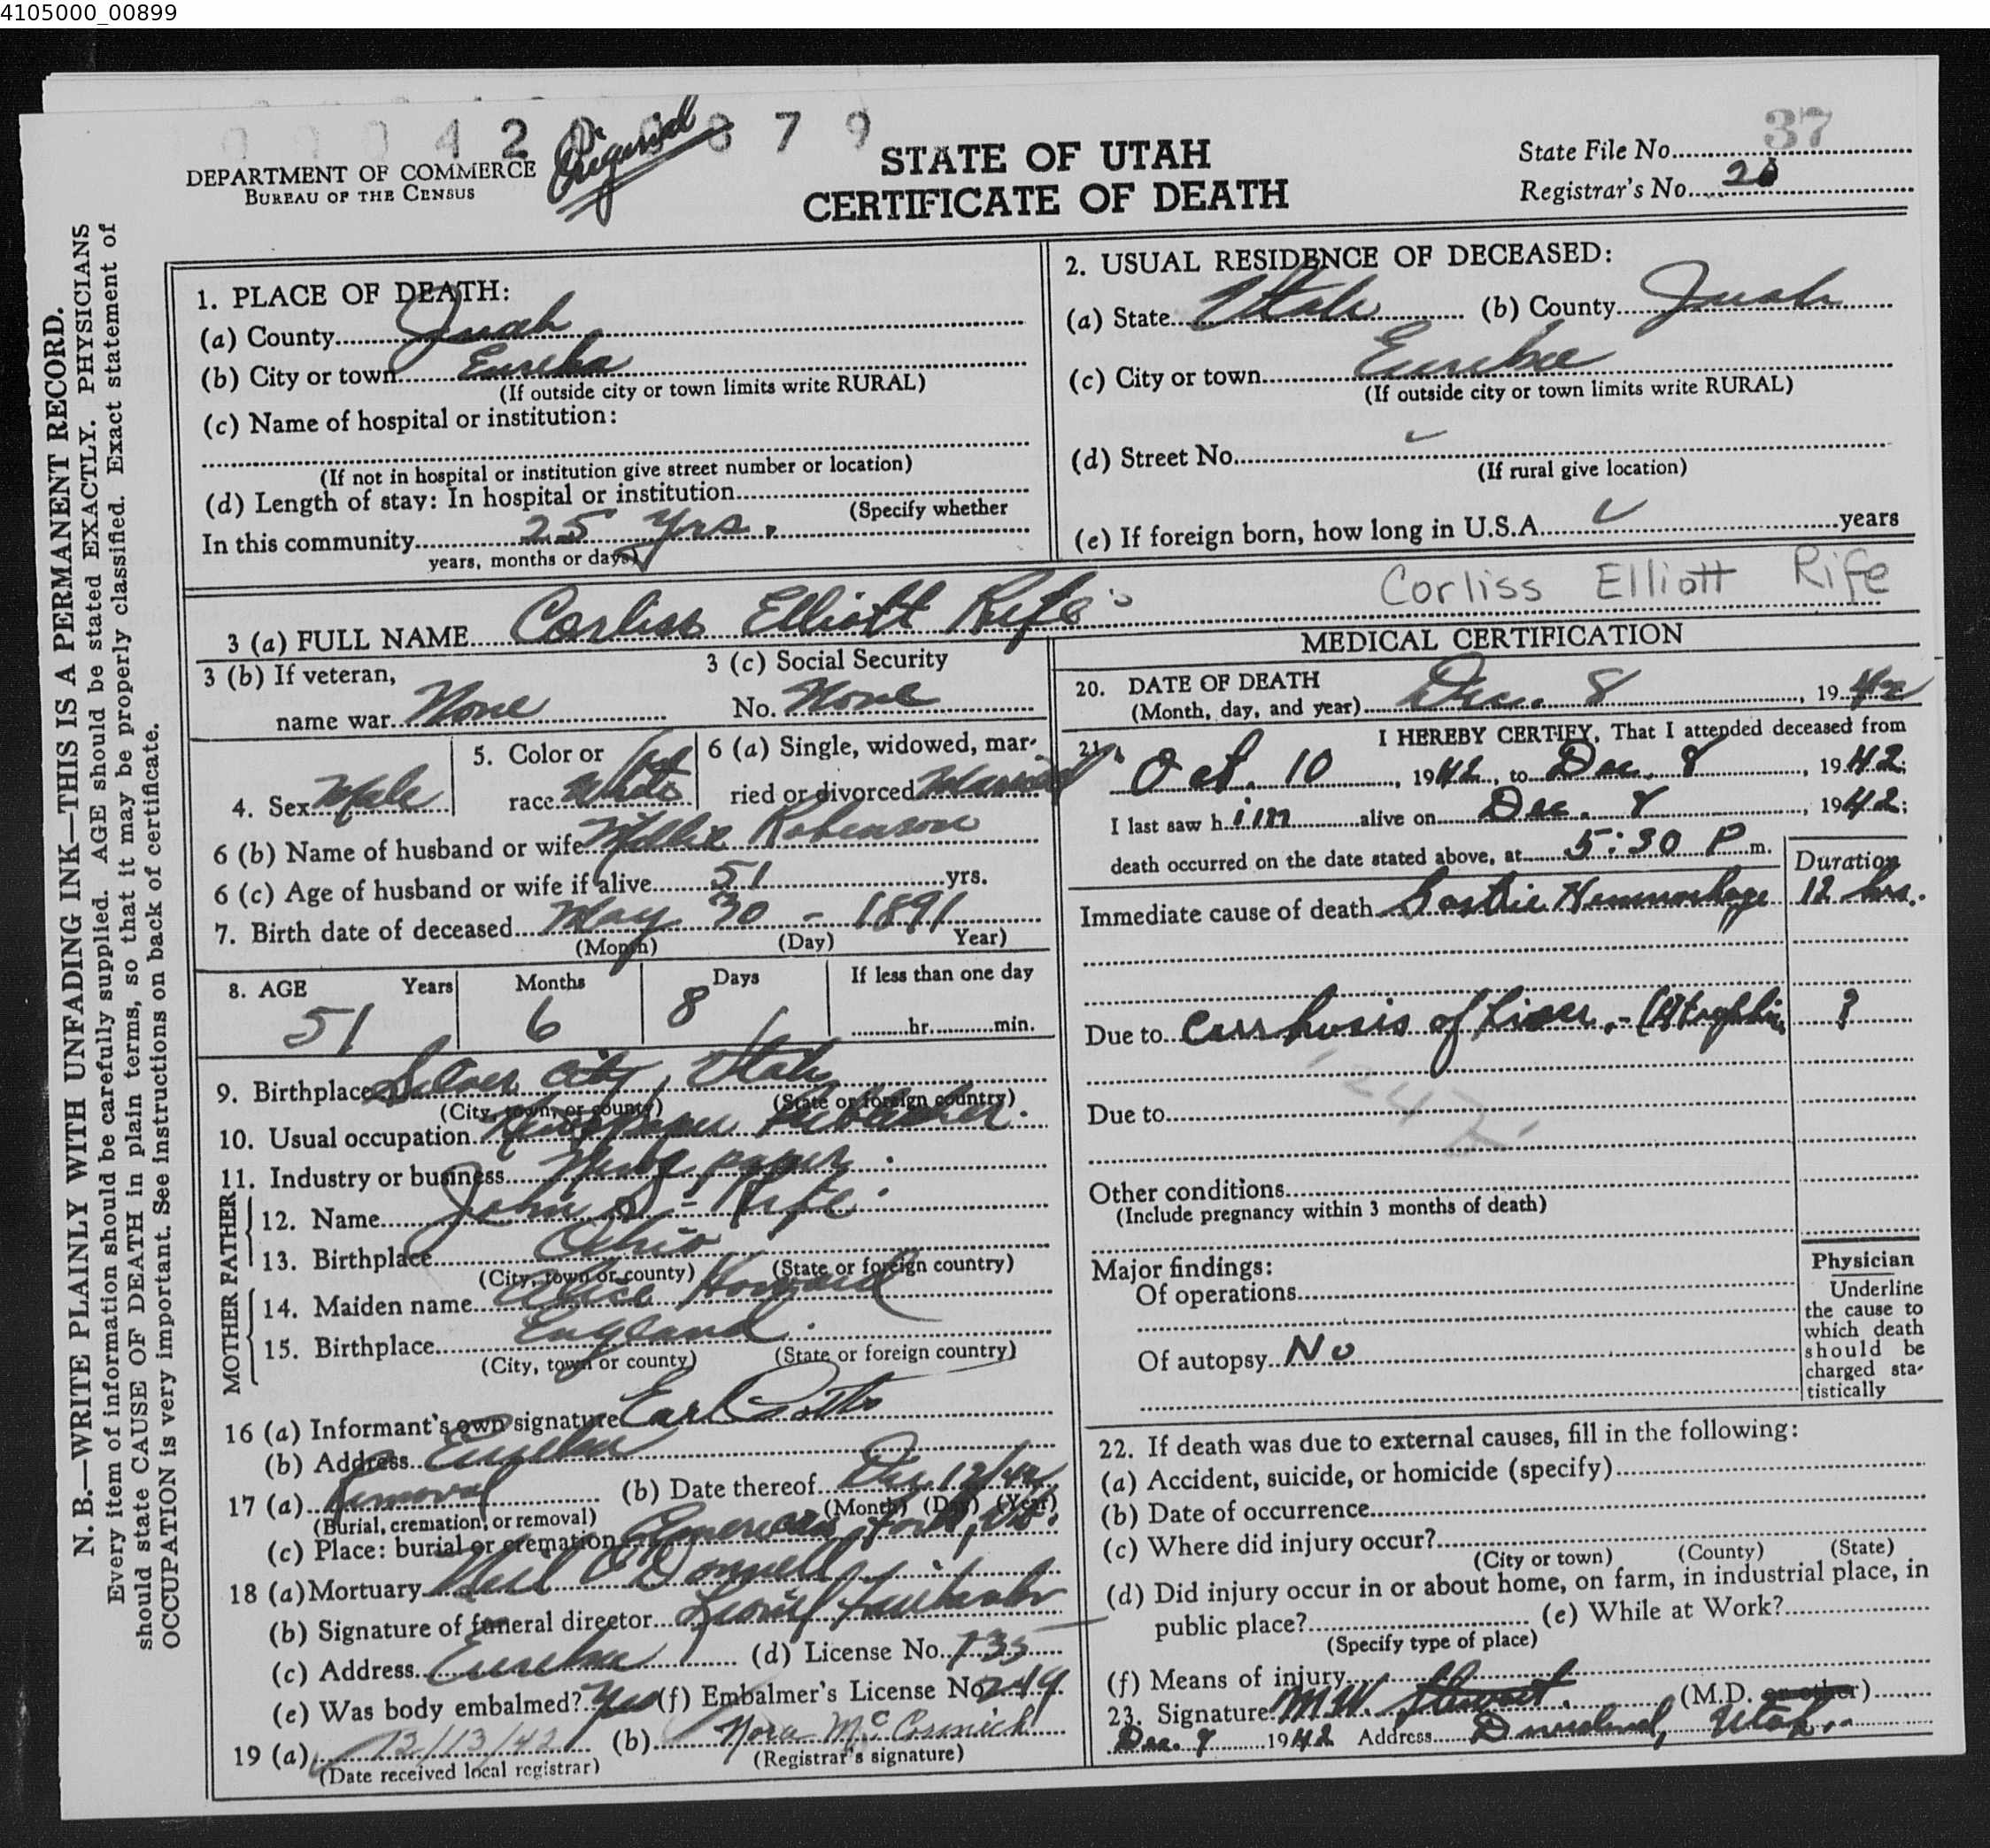 4105000_00899
0 0 0 4 2 0 0 8 7 9
Original
DEPARTMENT OF COMMERCE
BUREAU OF THE CENSUS
STATE OF UTAH
CERTIFICATE OF DEATH
State File No. 37
Registrar's No. 20
N. B.—WRITE PLAINLY WITH UNFADING INK—THIS IS A PERMANENT RECORD.
Every item of information should be carefully supplied. AGE should be stated EXACTLY. PHYSICIANS
should state CAUSE OF DEATH in plain terms, so that it may be properly classified. Exact statement of
OCCUPATION is very important. See instructions on back of certificate.
1. PLACE OF DEATH:
(a) County Juab
(b) City or town Eureka
(If outside city or town limits write RURAL)
(c) Name of hospital or institution:
(If not in hospital or institution give street number or location)
(d) Length of stay: In hospital or institution
(Specify whether
In this community 25 yrs.
years, months or days)
2. USUAL RESIDENCE OF DECEASED:
(a) State Utah (b) County Juab
(c) City or town Eureka
(If outside city or town limits write RURAL)
(d) Street No.
(If rural give location)
(e) If foreign born, how long in U.S.A. years
3 (a) FULL NAME Corliss Elliott Rife
Corliss Elliott Rife
3 (b) If veteran,
name war None
3 (c) Social Security
No. None
4. Sex Male
5. Color or
race White
6 (a) Single, widowed, mar-
ried or divorced Married
6 (b) Name of husband or wife Millie Robinson
6 (c) Age of husband or wife if alive 51 yrs.
7. Birth date of deceased May 30 - 1891
(Month) (Day) Year)
8. AGE Years Months Days If less than one day
51 6 8 hr. min.
9. Birthplace Silver City, Utah
(City, town, or county) (State or foreign country)
10. Usual occupation Newspaper Publisher.
11. Industry or business News paper.
FATHER
12. Name John S - Rife
13. Birthplace Ohio
(City, town or county) (State or foreign country)
MOTHER
14. Maiden name Alice Howard
15. Birthplace England.
(City, town or county) (State or foreign country)
16 (a) Informant's own signature Earl
(b) Address Eureka
17 (a) Removal (b) Date thereof Dec 12/42
(Burial, cremation, or removal) (Month) (Day) (Year)
(c) Place: burial or cremation American Fork, Ut.
18 (a) Mortuary Neil O'Donnell
(b) Signature of funeral director
(c) Address Eureka (d) License No. 735
(e) Was body embalmed? Yes (f) Embalmer's License No. 249
19 (a) 12/13/42 (b) Nora McCormick
(Date received local registrar) (Registrar's signature)
MEDICAL CERTIFICATION
20. DATE OF DEATH
(Month, day, and year) Dec. 8, 1942
21. I HEREBY CERTIFY, That I attended deceased from
Oct. 10, 1942, to Dec. 8, 1942;
I last saw h im alive on Dec. 8, 1942;
death occurred on the date stated above, at 5:30 P m.
Duration
Immediate cause of death Gastric Hemmorhage 12 hrs.
Due to Cirrhosis of Liver, - (Atrophic ?
242
Due to
Other conditions
(Include pregnancy within 3 months of death)
Major findings:
Of operations
Of autopsy No
Physician
Underline
the cause to
which death
should be
charged sta-
tistically
22. If death was due to external causes, fill in the following:
(a) Accident, suicide, or homicide (specify)
(b) Date of occurrence
(c) Where did injury occur?
(City or town) (County) (State)
(d) Did injury occur in or about home, on farm, in industrial place, in
public place? (e) While at Work?
(Specify type of place)
(f) Means of injury
23. Signature M.W. Stewart. (M.D. or other)
Dec. 9 1942 Address Dividend, Utah.